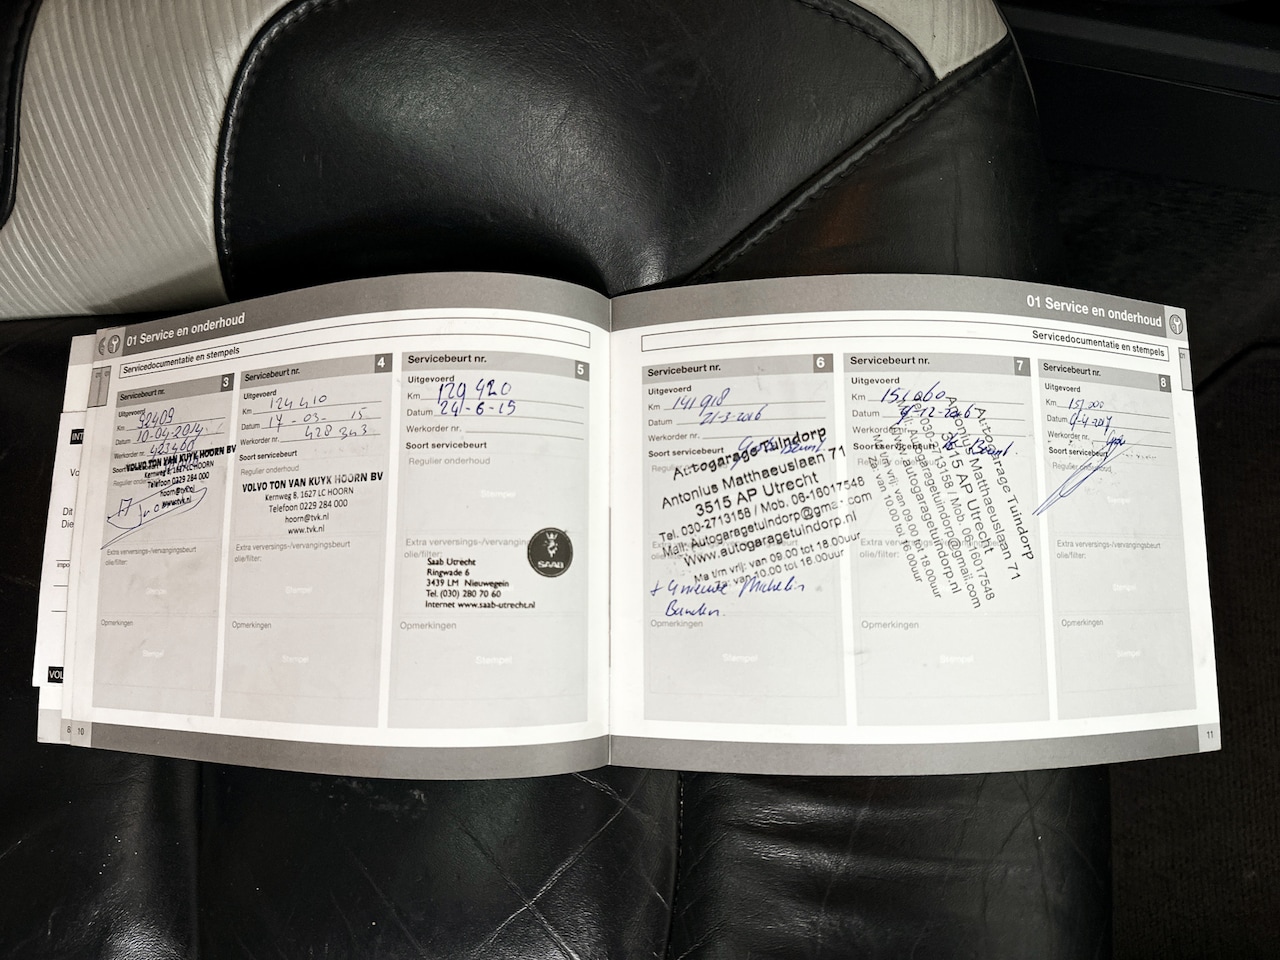 01 Service en onderhoud
Servicedocumentatie en stempels
Servicebeurt nr. 3
Uitgevoerd
Km 92409
Datum 10-04-2014
Werkorder nr. 423460
Soort
VOLVO TON VAN KUYK HOORN BV
Kernweg 8, 1627 LC HOORN
Telefoon 0229 284 000
hoorn@tvk.nl
www.tvk.nl
Extra verversings-/vervangingsbeurt
olie/filter:
Opmerkingen
Stempel
Servicebeurt nr. 4
Uitgevoerd
Km 124410
Datum 17-03-15
Werkorder nr. 428 343
Soort servicebeurt
Regulier onderhoud
VOLVO TON VAN KUYK HOORN BV
Kernweg 8, 1627 LC HOORN
Telefoon 0229 284 000
hoorn@tvk.nl
www.tvk.nl
Extra verversings-/vervangingsbeurt
olie/filter:
Opmerkingen
Stempel
Servicebeurt nr. 5
Uitgevoerd
Km 129420
Datum 24-6-15
Werkorder nr.
Soort servicebeurt
Regulier onderhoud
Stempel
Extra verversings-/vervangingsbeurt
olie/filter:
SAAB
Saab Utrecht
Ringwade 6
3439 LM Nieuwegein
Tel. (030) 280 70 60
Internet www.saab-utrecht.nl
Opmerkingen
Stempel
8 10
01 Service en onderhoud
Servicedocumentatie en stempels
01
Servicebeurt nr. 6
Uitgevoerd
Km 141918
Datum 21-3-2016
Werkorder nr.
Soort servicebeurt
Autogarage Tuindorp
Antonius Matthaeuslaan 71
3515 AP Utrecht
Tel. 030-2713158 / Mob. 06-16017548
Mail: Autogaragetuindorp@gmail.com
Www.autogaragetuindorp.nl
Ma t/m vrij: van 09.00 tot 18.00uur
Za: van 10.00 tot 16.00uur
+ 4 nieuwe Michelin
Banden.
Opmerkingen
Stempel
Servicebeurt nr. 7
Uitgevoerd
Km 151060
Datum 9-12-2016
Werkorder nr.
Soort servicebeurt
Beurt.
Autogarage Tuindorp
Antonius Matthaeuslaan 71
3515 AP Utrecht
Tel. 030-2713158 / Mob. 06-16017548
Mail: Autogaragetuindorp@gmail.com
Www.autogaragetuindorp.nl
Ma t/m vrij: van 09.00 tot 18.00uur
Za: van 10.00 tot 16.00uur
Opmerkingen
Stempel
Servicebeurt nr. 8
Uitgevoerd
Km
Datum
Werkorder nr.
Soort servicebeurt
Regulier onderhoud
Stempel
Extra verversings-/vervangingsbeurt
olie/filter:
Opmerkingen
Stempel
11